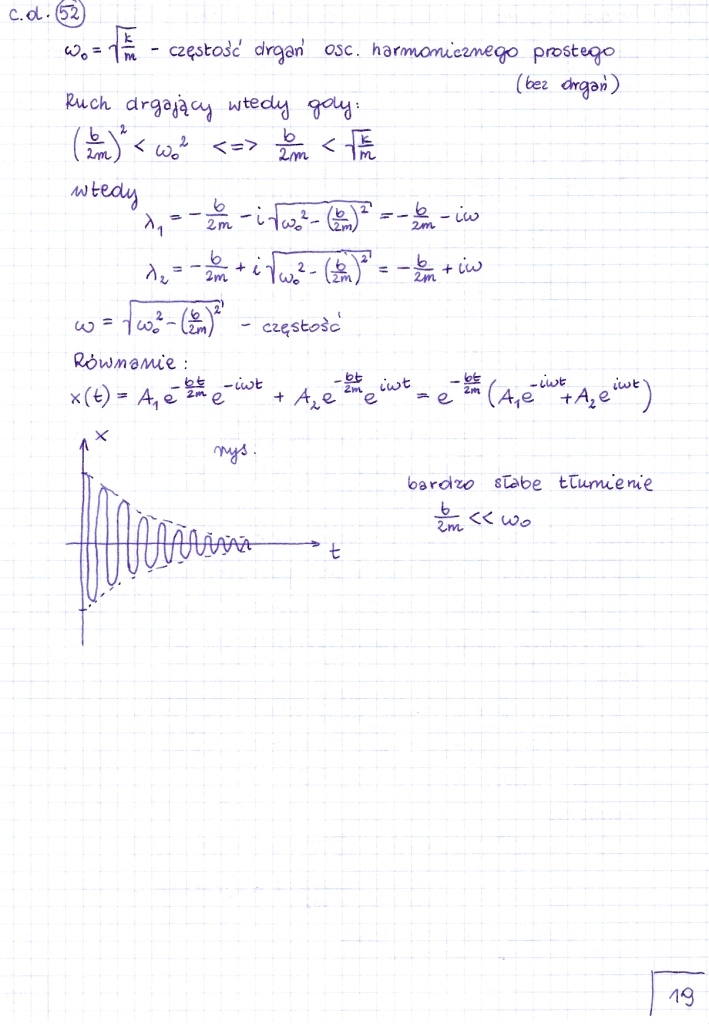 c.d. 52
ω₀ = √(k/m) - częstość drgań osc. harmonicznego prostego
(bez drgań)
Ruch drgający wtedy gdy:
(b/2m)² < ω₀² <=> b/2m < √(k/m)
wtedy
λ₁ = -b/2m - i√(ω₀² - (b/2m)²) = -b/2m - iω
λ₂ = -b/2m + i√(ω₀² - (b/2m)²) = -b/2m + iω
ω = √(ω₀² - (b/2m)²) - częstość
Równanie:
x(t) = A₁e^(-bt/2m) e^(-iωt) + A₂e^(-bt/2m) e^(iωt) = e^(-bt/2m) (A₁e^(-iωt) + A₂e^(iωt))
x
rys.
bardzo słabe tłumienie
b/2m << ω₀
t
19